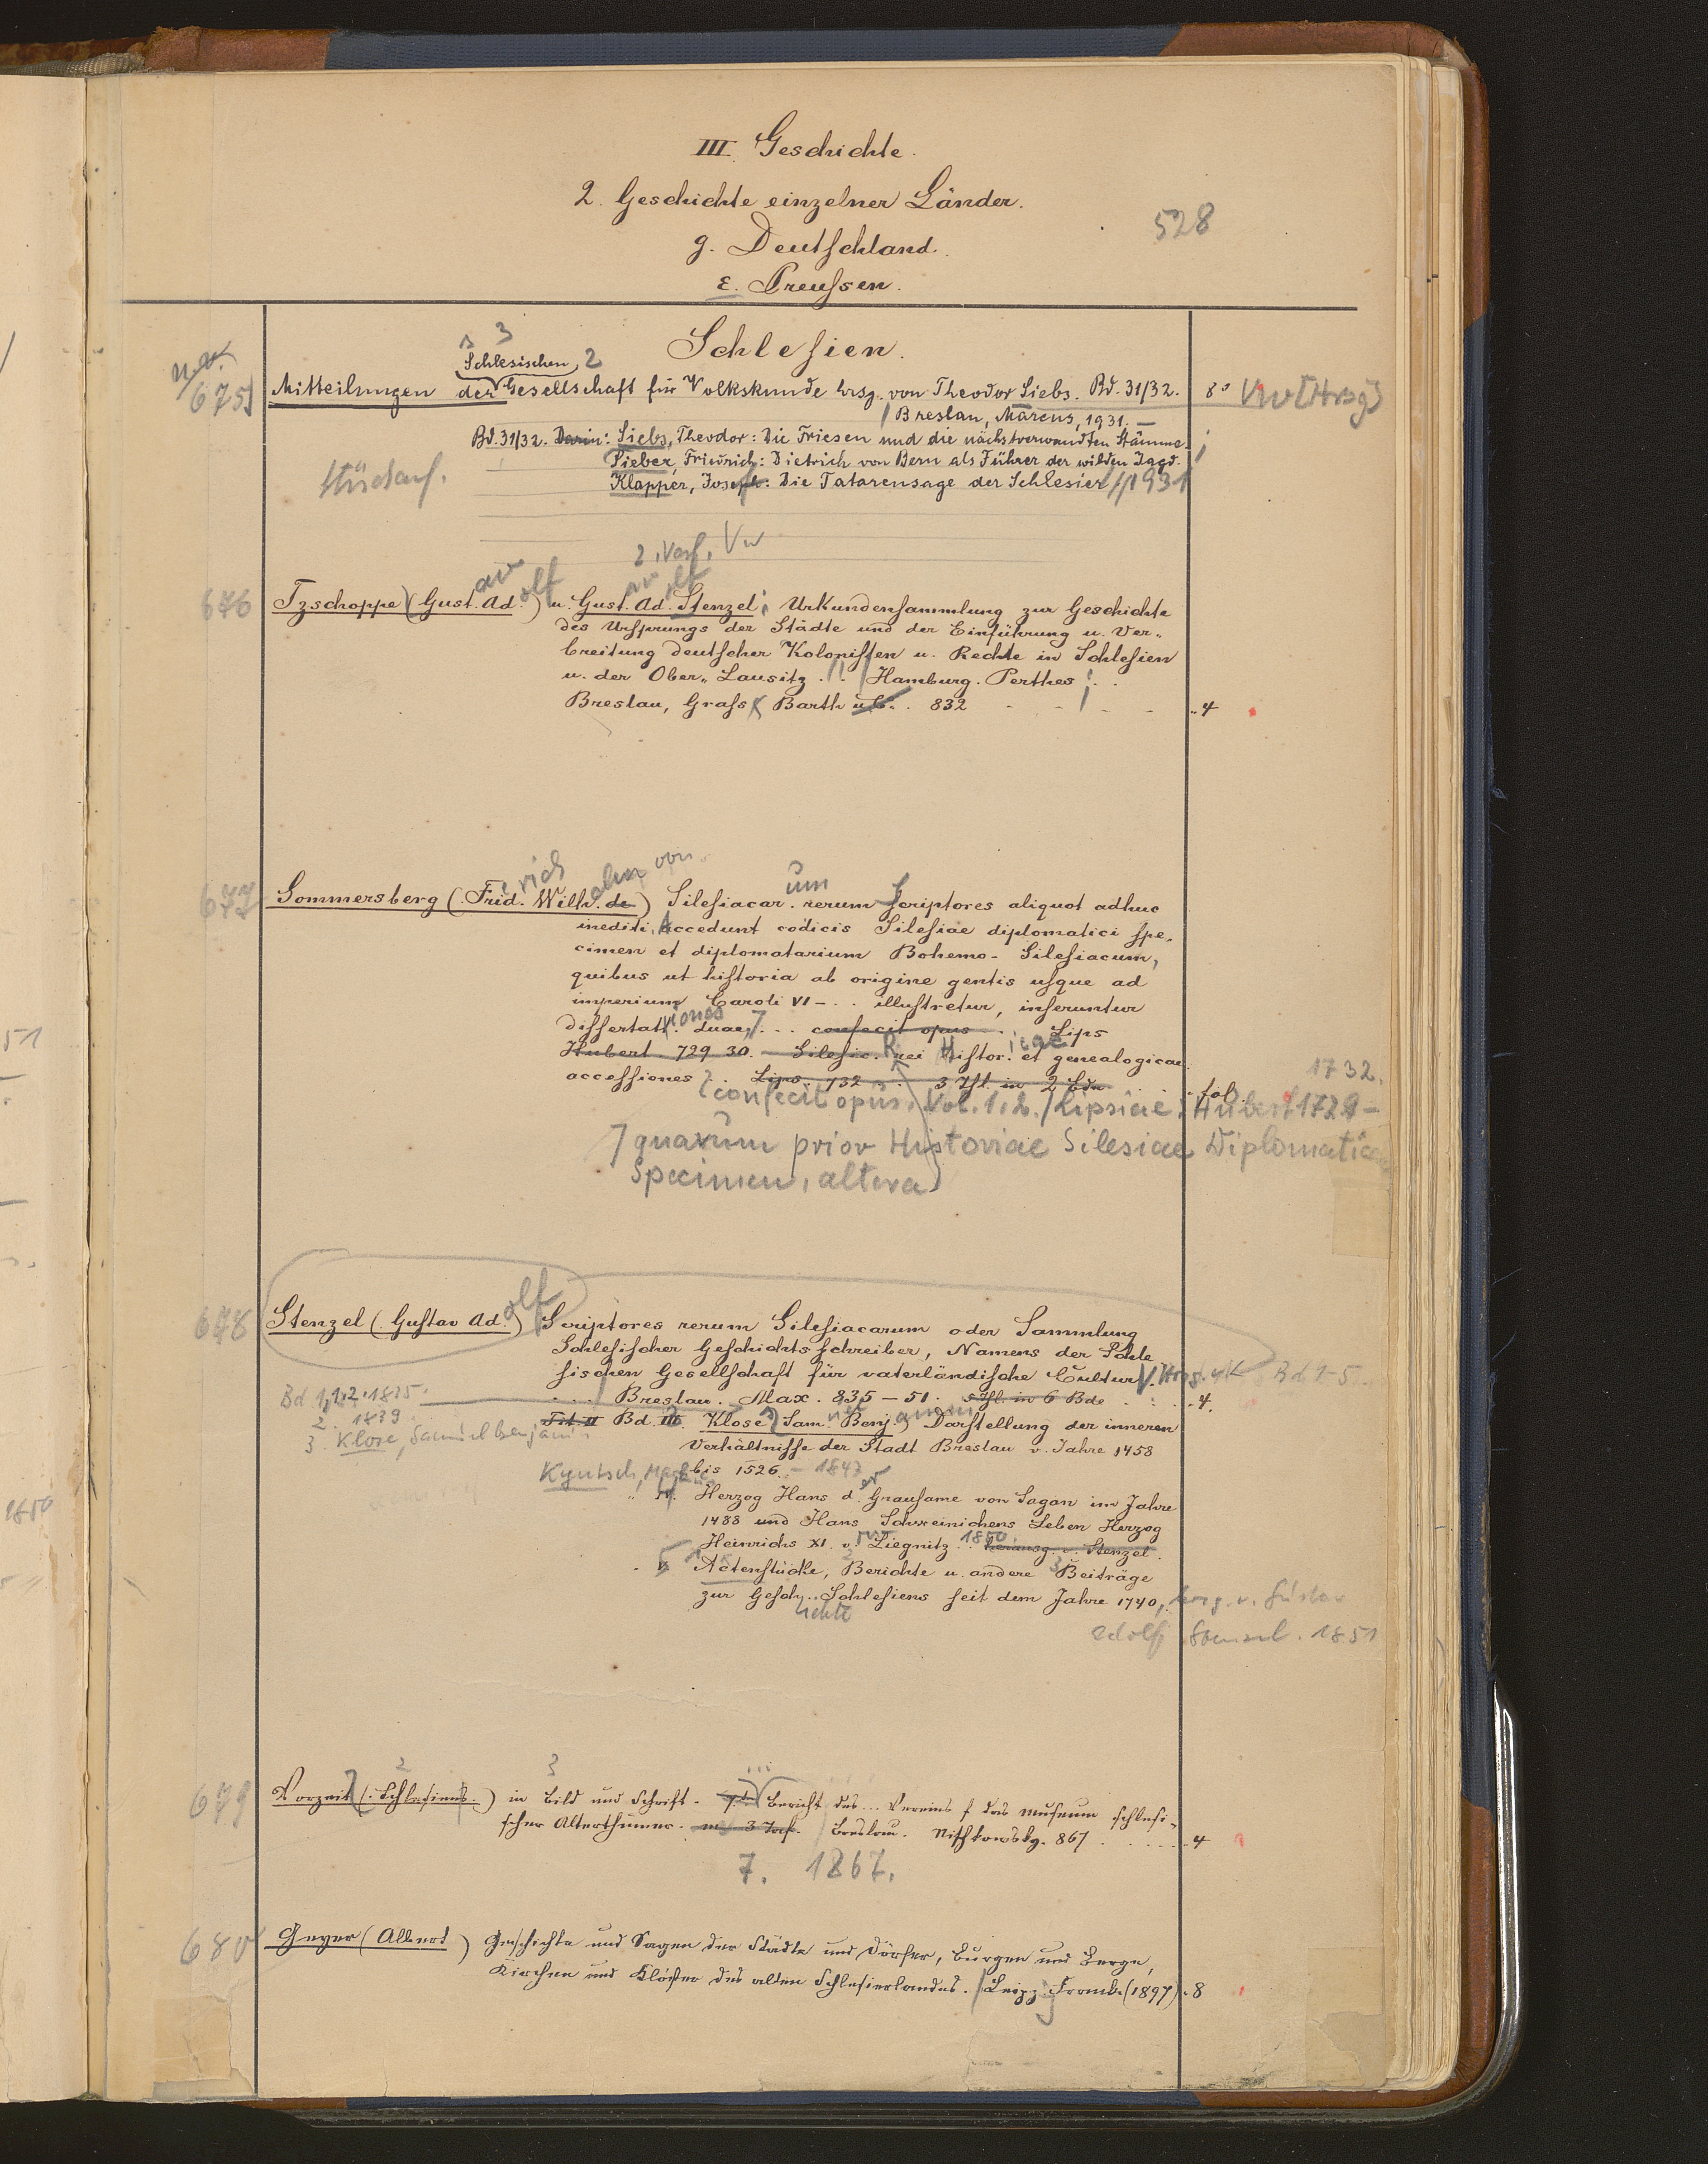 III Geschichte.
2. Geschichte einzelner Länder.
528
g. Deutschland.
ε. Preussen.
Schlesien.
3
Schlesischen 2
675
Mitteilungen der Gesellschaft für Volkskunde hrsg. von Theodor Siebs. Bd. 31/32. 8° Vw [Hrsg]
Breslau, Marcus, 1931. —
Bd. 31/32. Darin: Siebs, Theodor: Die Friesen und die nächstverwandten Stämme
Sieber, Friedrich: Dietrich von Bern als Führer der wilden Jagd.
Klapper, Joseph: Die Tatarensage der Schlesier 1931
2. Verf. Vw
av olf av olf
676 Tzschoppe (Gust. Ad.) u. Gust. Ad. Stenzel; Urkundensammlung zur Geschichte
des Ursprungs der Städte und der Einführung u. Ver-
breitung deutscher Kolonisten u. Rechte in Schlesien
u. der Ober-Lausitz . . Hamburg. Perthes; . .
Breslau, Grass, Barth u. C. . 832 4
rich elm von um
677 Sommersberg (Frid. Wilh. de) Silesiacar. rerum Scriptores aliquot adhuc
inediti, Accedunt codicis Silesiae diplomatici spe-
cimen et diplomatarium Bohemo-Silesiacum,
quibus ut historia ab origine gentis usque ad
imperium Caroli VI - . . illustretur, inseruntur
dissertat. iones duae, 7 . . confecit opus . Lips
Hubert. 729 30. - Silesic. rei Histor. icae et genealogicae
accessiones . Lips. 732 . 3 Thl. in 2 Bdn . fol.
1732.
confecit opus. Vol. 1. 2. / Lipsiae: Hubert 1729 -
7 quarum prior Historiae Silesiae Diplomaticae
Specimen, altera)
olf
678 Stenzel (Gustav Ad.) Scriptores rerum Silesiacarum oder Sammlung
Schlesischer Geschichtsschreiber, Namens der Schle
sischen Gesellschaft für vaterländische Cultur. Bd 1-5.
Breslau. Max. 835-51. 5 Thl. in 6 Bde . . 4.
Bd 1, 1. 2. 1835.
2. 1839
3. Klose, Samuel Benjamin
Tit. II Bd. III. Klose, Sam. Benj. Darstellung der inneren
Verhältnisse der Stadt Breslau v. Jahre 1458
bis 1526. - 1847
Herzog Hans d. Grausame von Sagan im Jahre
1488 und Hans Schweinichens Leben Herzog
Heinrichs XI. v. Liegnitz . . 1850. herausg. v. Stenzel.
5 Actenstücke, Berichte u. andere Beiträge
zur Gesch. ichte Schlesiens seit dem Jahre 1740, hrsg. v. Gustav
Adolf Stenzel. 1851
2 3
679 Vorzeit (Schlesiens.) in Bild und Schrift. 7. Bericht des ... Vereins f das Museum schlesi-
scher Alterthümer. m 3 Taf. Breslau. Nischkowsky. 867 . . . . 4
7. 1867.
680 Geyer (Albert) Geschichte und Sagen der Städte und Dörfer, Burgen und Berge,
Kirchen und Klöster des alten Schlesierlandes. Leipz. Franke (1897). 8